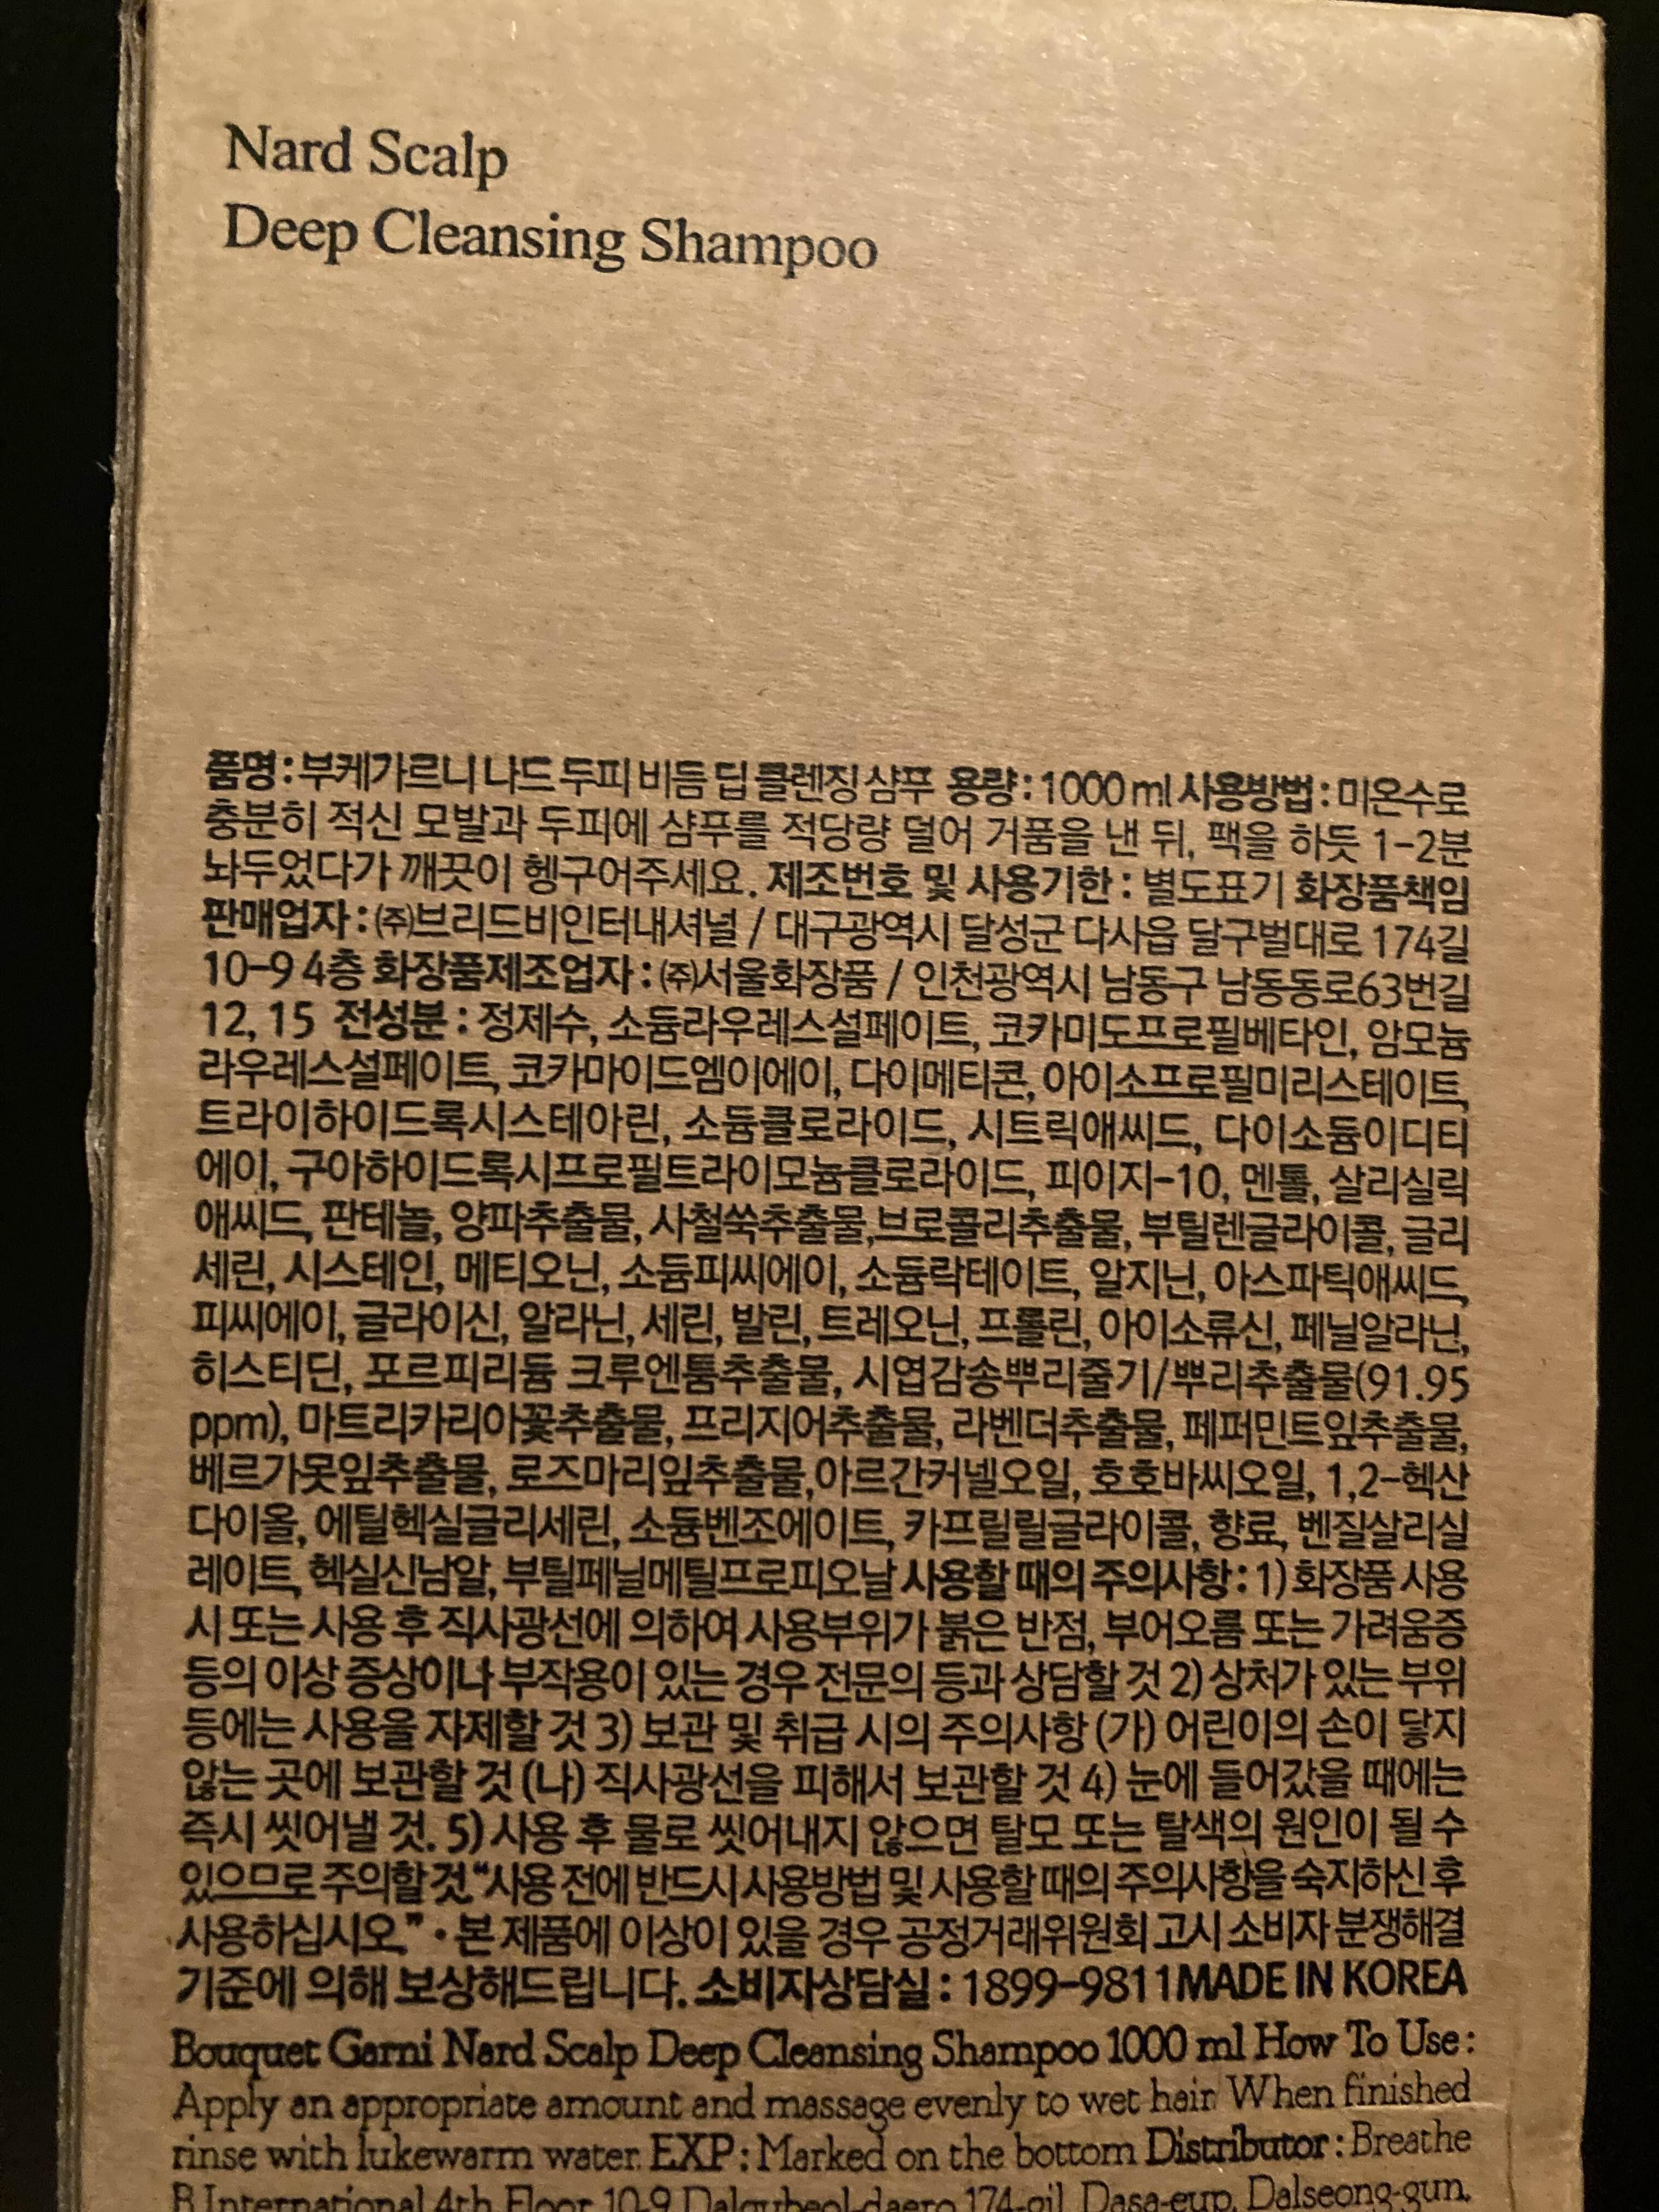 Nard Scalp
Deep Cleansing Shampoo
품명 : 부케가르니 나드 두피 비듬 딥 클렌징 샴푸 용량 : 1000 ml 사용방법 : 미온수로
충분히 적신 모발과 두피에 샴푸를 적당량 덜어 거품을 낸 뒤, 팩을 하듯 1-2분
놔두었다가 깨끗이 헹구어주세요. 제조번호 및 사용기한 : 별도표기 화장품책임
판매업자 : ㈜브리드비인터내셔널 / 대구광역시 달성군 다사읍 달구벌대로 174길
10-9 4층 화장품제조업자 : ㈜서울화장품 / 인천광역시 남동구 남동동로63번길
12, 15 전성분 : 정제수, 소듐라우레스설페이트, 코카미도프로필베타인, 암모늄
라우레스설페이트, 코카마이드엠이에이, 다이메티콘, 아이소프로필미리스테이트,
트라이하이드록시스테아린, 소듐클로라이드, 시트릭애씨드, 다이소듐이디티
에이, 구아하이드록시프로필트라이모늄클로라이드, 피이지-10, 멘톨, 살리실릭
애씨드, 판테놀, 양파추출물, 사철쑥추출물,브로콜리추출물, 부틸렌글라이콜, 글리
세린, 시스테인, 메티오닌, 소듐피씨에이, 소듐락테이트, 알지닌, 아스파틱애씨드,
피씨에이, 글라이신, 알라닌, 세린, 발린, 트레오닌, 프롤린, 아이소류신, 페닐알라닌,
히스티딘, 포르피리듐 크루엔툼추출물, 시엽감송뿌리줄기/뿌리추출물(91.95
ppm), 마트리카리아꽃추출물, 프리지어추출물, 라벤더추출물, 페퍼민트잎추출물,
베르가못잎추출물, 로즈마리잎추출물,아르간커넬오일, 호호바씨오일, 1,2-헥산
다이올, 에틸헥실글리세린, 소듐벤조에이트, 카프릴릴글라이콜, 향료, 벤질살리실
레이트, 헥실신남알, 부틸페닐메틸프로피오날 사용할 때의 주의사항 : 1) 화장품 사용
시 또는 사용 후 직사광선에 의하여 사용부위가 붉은 반점, 부어오름 또는 가려움증
등의 이상 증상이나 부작용이 있는 경우 전문의 등과 상담할 것 2) 상처가 있는 부위
등에는 사용을 자제할 것 3) 보관 및 취급 시의 주의사항 (가) 어린이의 손이 닿지
않는 곳에 보관할 것 (나) 직사광선을 피해서 보관할 것 4) 눈에 들어갔을 때에는
즉시 씻어낼 것. 5) 사용 후 물로 씻어내지 않으면 탈모 또는 탈색의 원인이 될 수
있으므로 주의할 것. “사용 전에 반드시 사용방법 및 사용할 때의 주의사항을 숙지하신 후
사용하십시오.” • 본 제품에 이상이 있을 경우 공정거래위원회 고시 소비자 분쟁해결
기준에 의해 보상해드립니다. 소비자상담실 : 1899-9811 MADE IN KOREA
Bouquet Garni Nard Scalp Deep Cleansing Shampoo 1000 ml How To Use :
Apply an appropriate amount and massage evenly to wet hair. When finished
rinse with lukewarm water. EXP : Marked on the bottom Distributor : Breathe
B International 4th Floor, 10-9, Dalgubeol-daero 174-gil, Dasa-eup, Dalseong-gun,